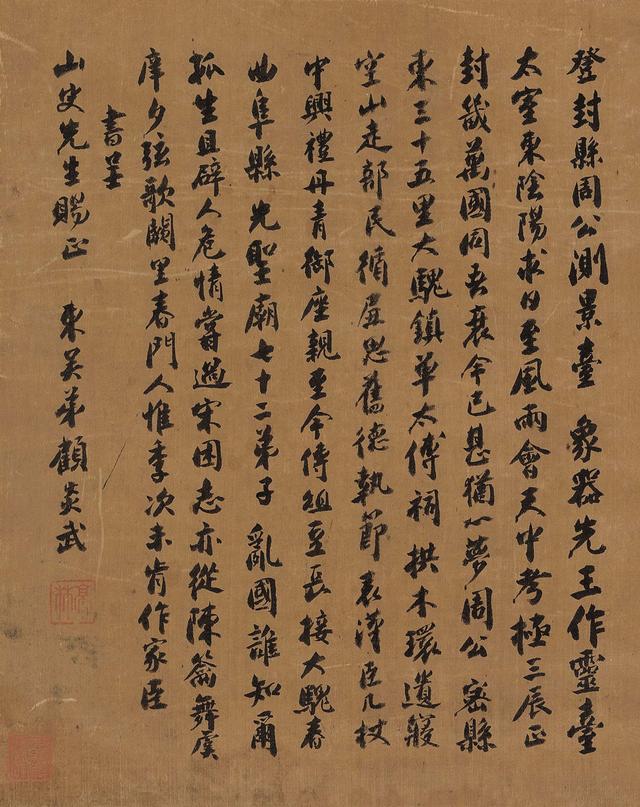 登封縣周公測景臺 象器先王作靈臺
太室東陰陽求日至風雨會天中考極三辰正
封畿萬國同吾衰今已甚猶夢周公密縣
東三十五里大騩鎮卓太傅祠 拱木環遺寢
空山走部民循思舊德執節表漢臣几杖
中興禮丹青御座親至今傳俎豆長接大騩春
曲阜縣 先聖廟七十二弟子 亂國誰知爾
孤生且辟人危情嘗過宋困志亦從陳籥舞虞
庠夕弦歌闕里春門人惟季次未肯作家臣
書呈
山史先生賜正 東吳弟顧炎武